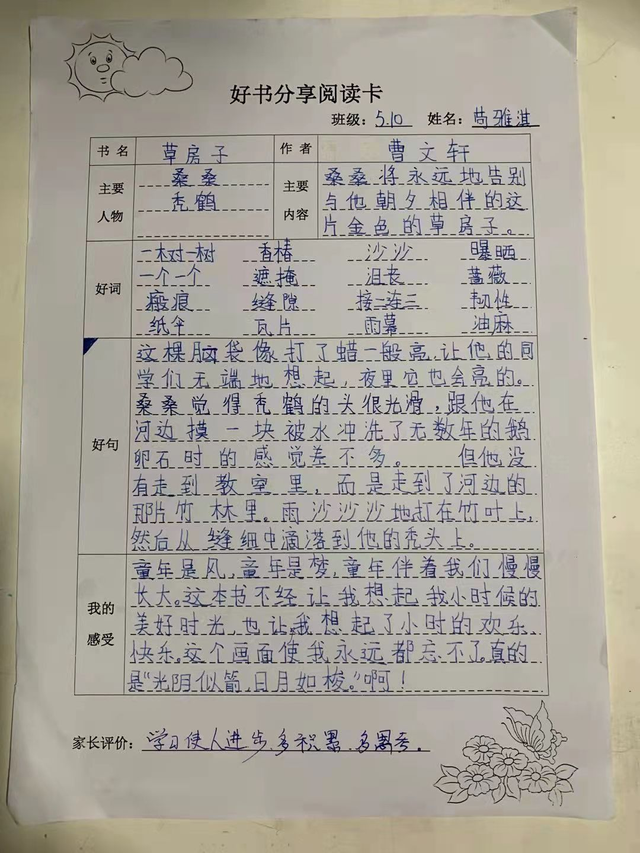 好书分享阅读卡
班级：5.10 姓名：苟雅淇
书名 草房子 作者 曹文轩
主要人物 桑桑 秃鹤
主要内容 桑桑将永远地告别
与他朝夕相伴的这
片金色的草房子。
好词
一树一树 香椿 沙沙 曝晒
一个一个 遮掩 沮丧 蔷薇
瘢痕 缝隙 接二连三 韧性
纸伞 瓦片 雨幕 油麻
好句
这棵脑袋像打了蜡一般亮,让他的同
学们无端地想起,夜里它也会亮的。
桑桑觉得秃鹤的头很光滑,跟他在
河边摸一块被水冲洗了无数年的鹅
卵石时的感觉差不多。 但他没
有走到教室里,而是走到了河边的
那片竹林里。雨沙沙沙地打在竹叶上,
然后从缝细中滴落到他的秃头上。
我的感受
童年是风,童年是梦,童年伴着我们慢慢
长大。这本书不经让我想起我小时候的
美好时光,也让我想起了小时的欢乐
快乐。这个画面使我永远都忘不了。真的
是“光阴似箭,日月如梭。”啊!
家长评价：学习使人进步,多积累,多思考。